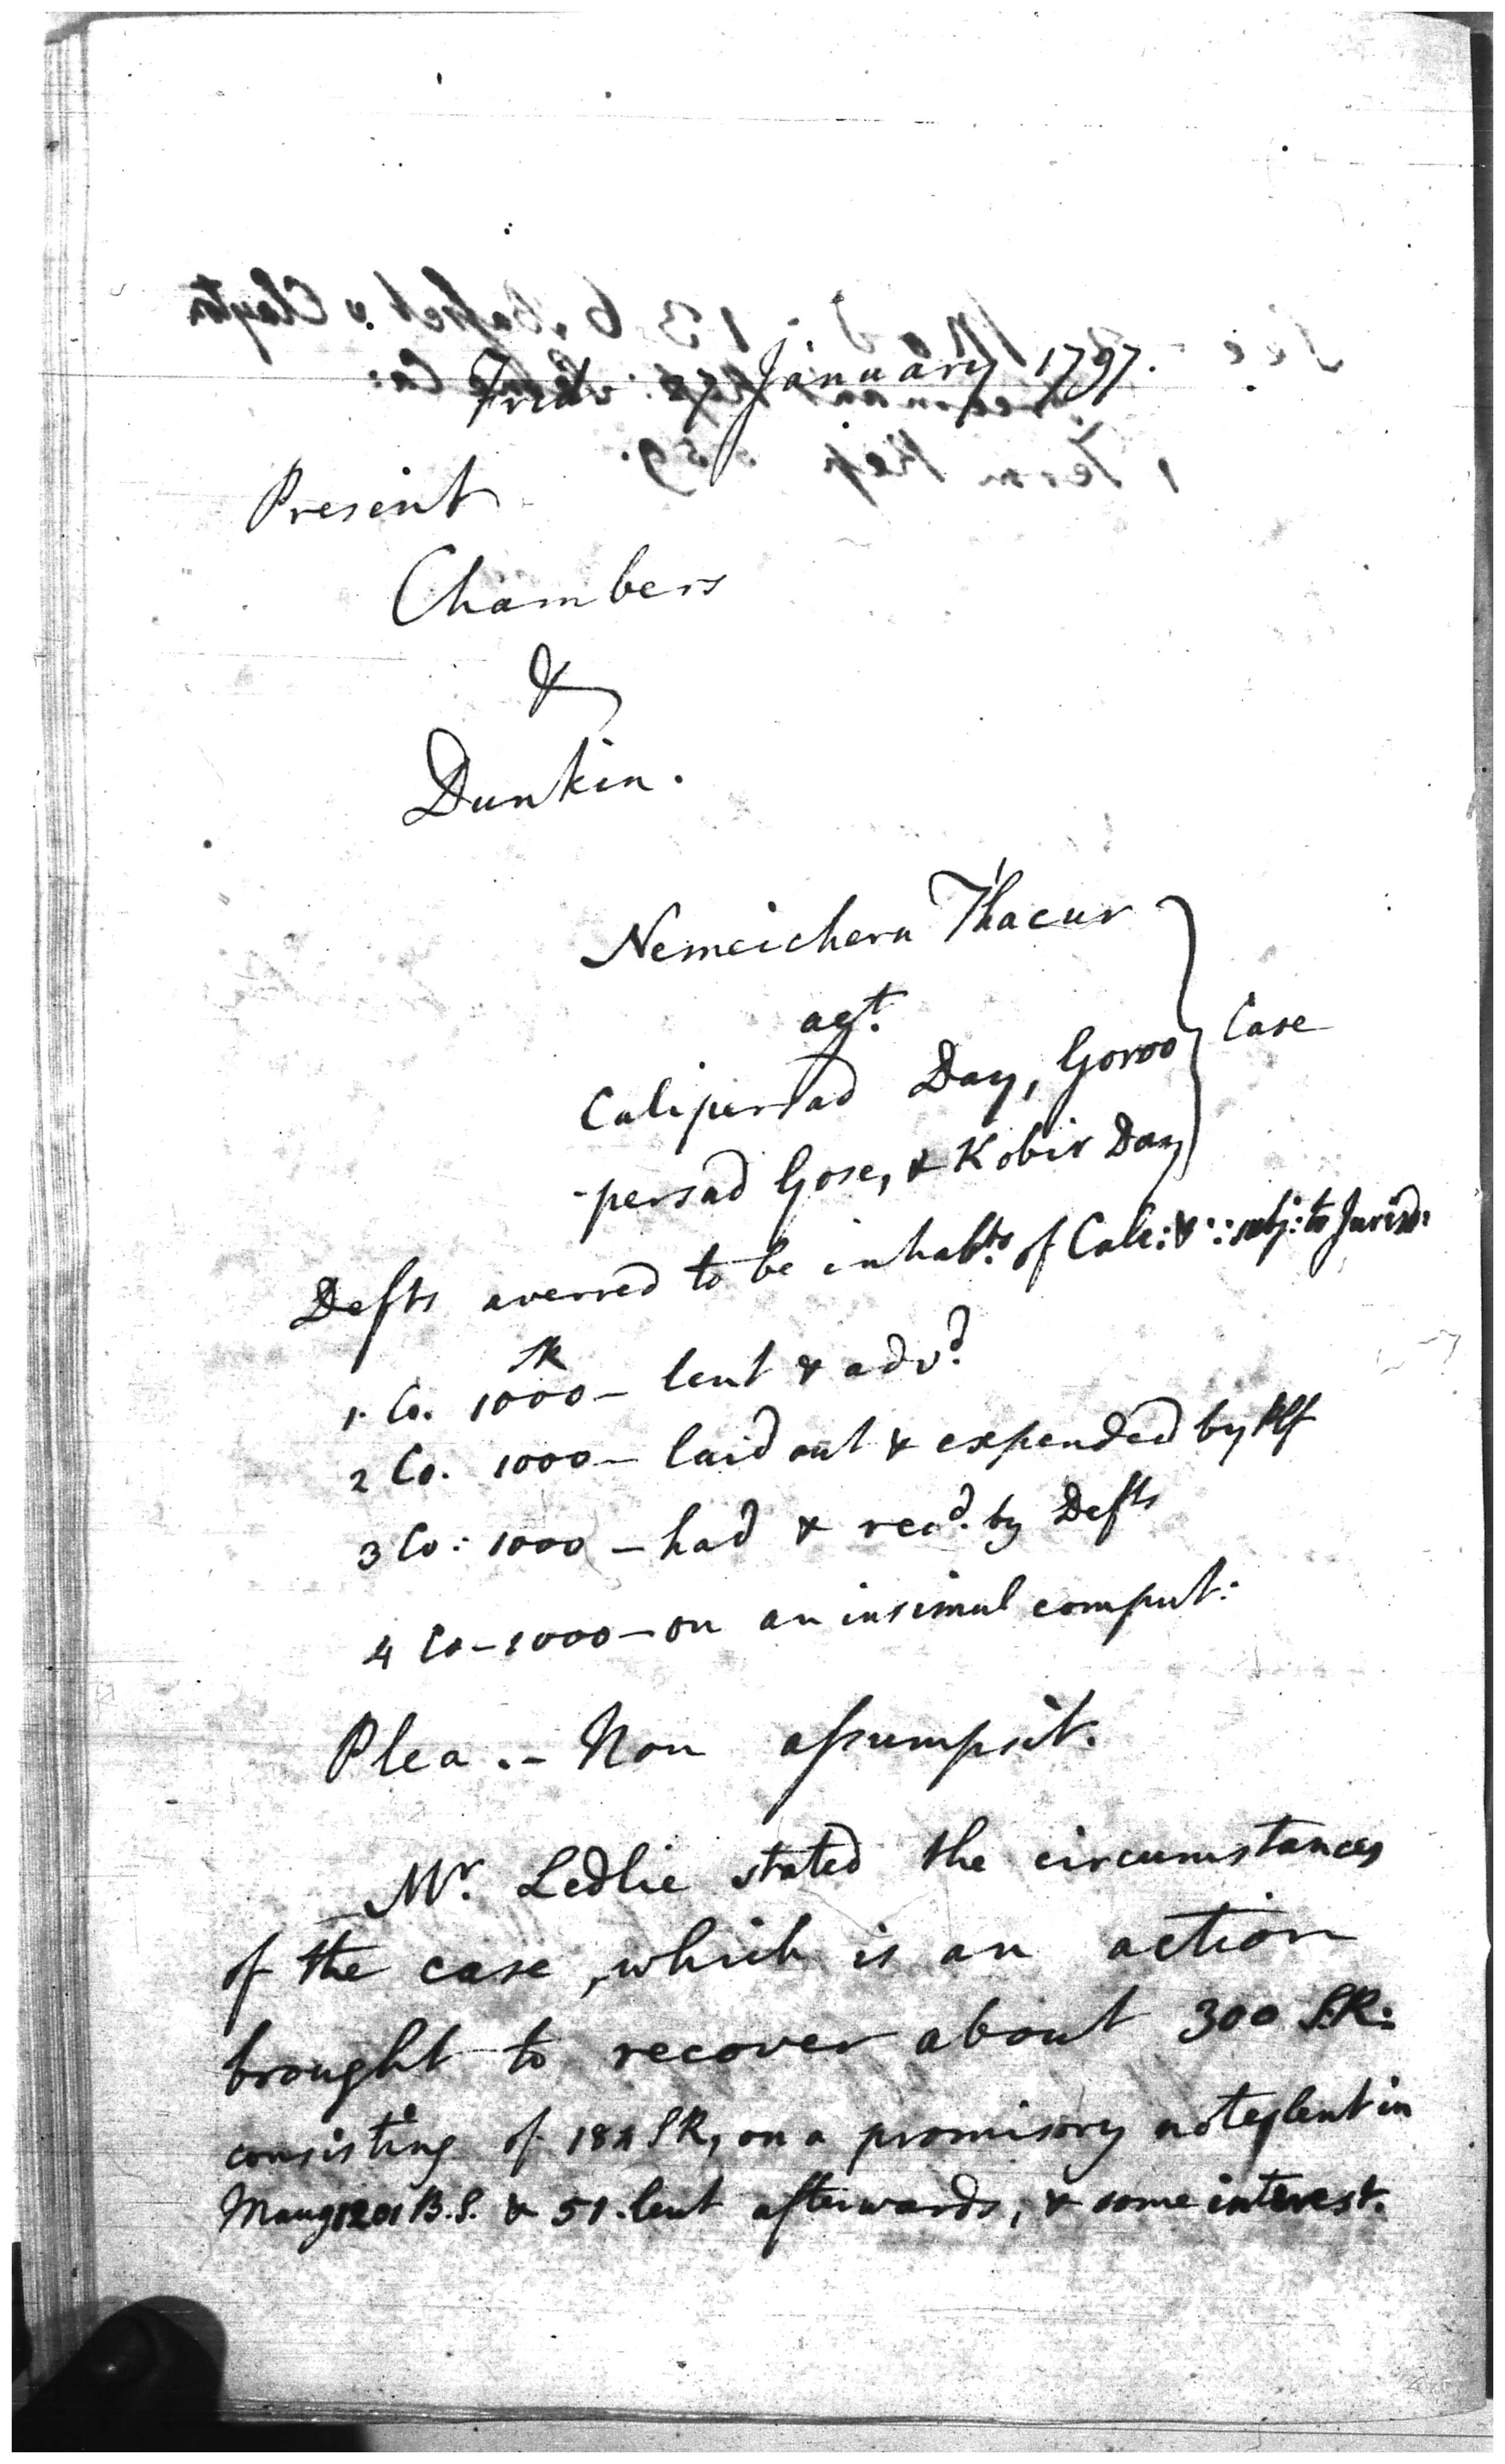 Frid: 27 January 1797.
Present
Chambers
&
Dunkin.
Nemeichern Thacur
agt.
Calipersad Day, Goroo
-persad Gose, & Kobir Day
Case
Defts averred to be inhabts. of Calc: & :: subj: to Jurisd:
SR
1. Co. 1000 – lent & advd.
2 Co. 1000 – laid out & expended by Plf
3 Co: 1000 – had & recd. by Defts
4 Co – 1000 – on an insimul comput:
Plea. – Non assumpsit.
Mr. Ledlie stated the circumstances
of the case, which is an action
brought to recover about 300 S.R:
consisting of SR, on a promisory note, lent in
Maug 1201 B.S. & 51. lent afterwards, & some interest.